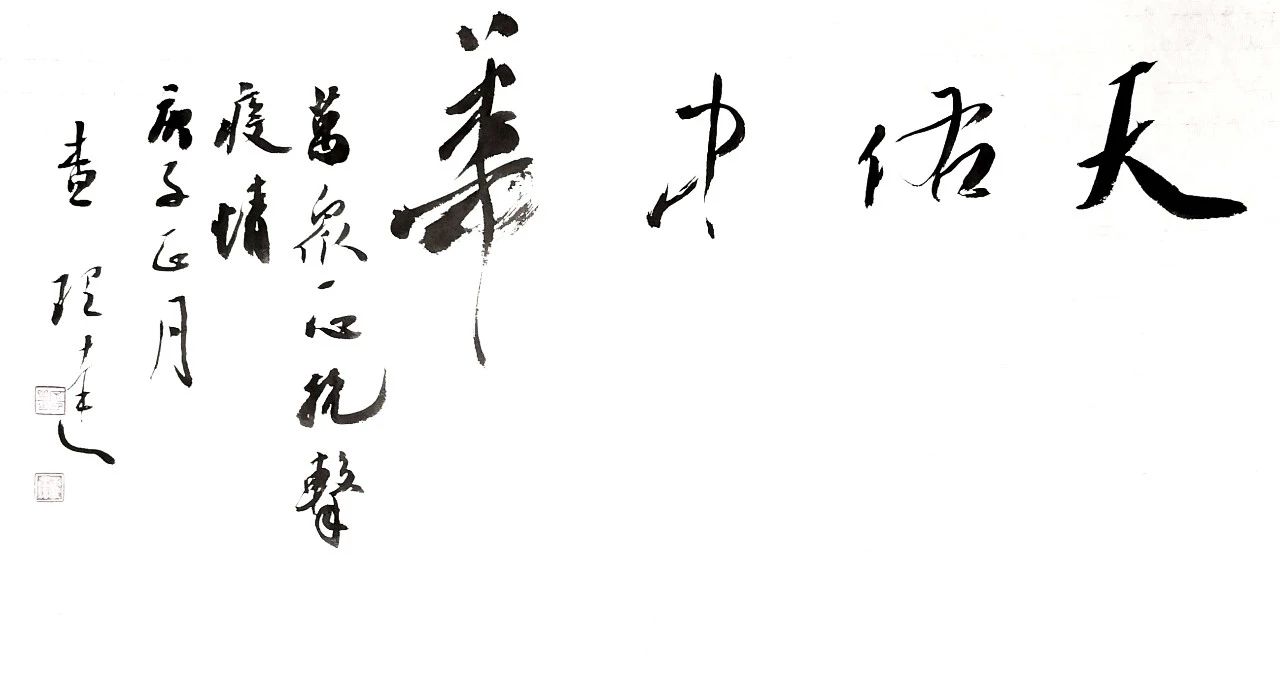 天佑中華
萬眾一心抗擊
疫情
庚子正月
查理達